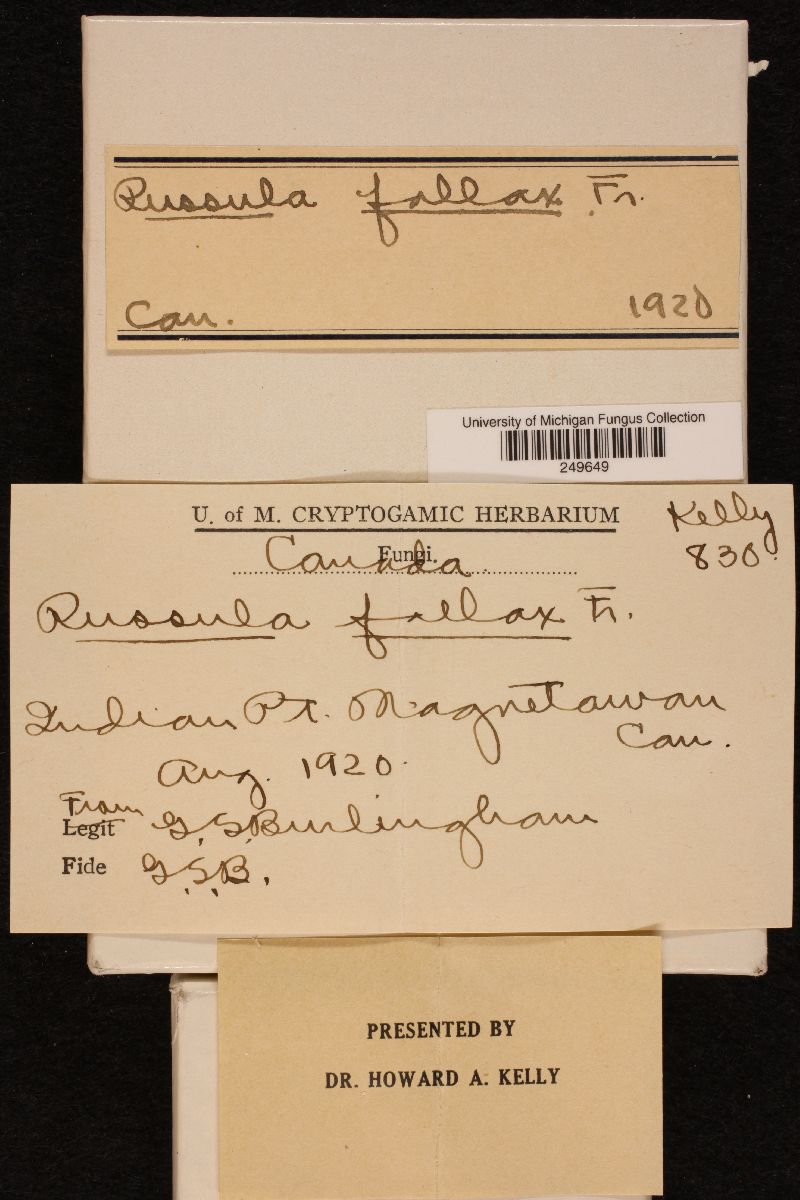 Russula fallax Fr.
Can. 1920
University of Michigan Fungus Collection
249649
U. of M. CRYPTOGAMIC HERBARIUM
Kelly
830.
Fungi.
Canada
Russula fallax Fr.
Indian Pt. Magnetawan
Can.
Aug. 1920.
From
Legit G. S. Burlingham
Fide G.S.B.
PRESENTED BY
DR. HOWARD A. KELLY